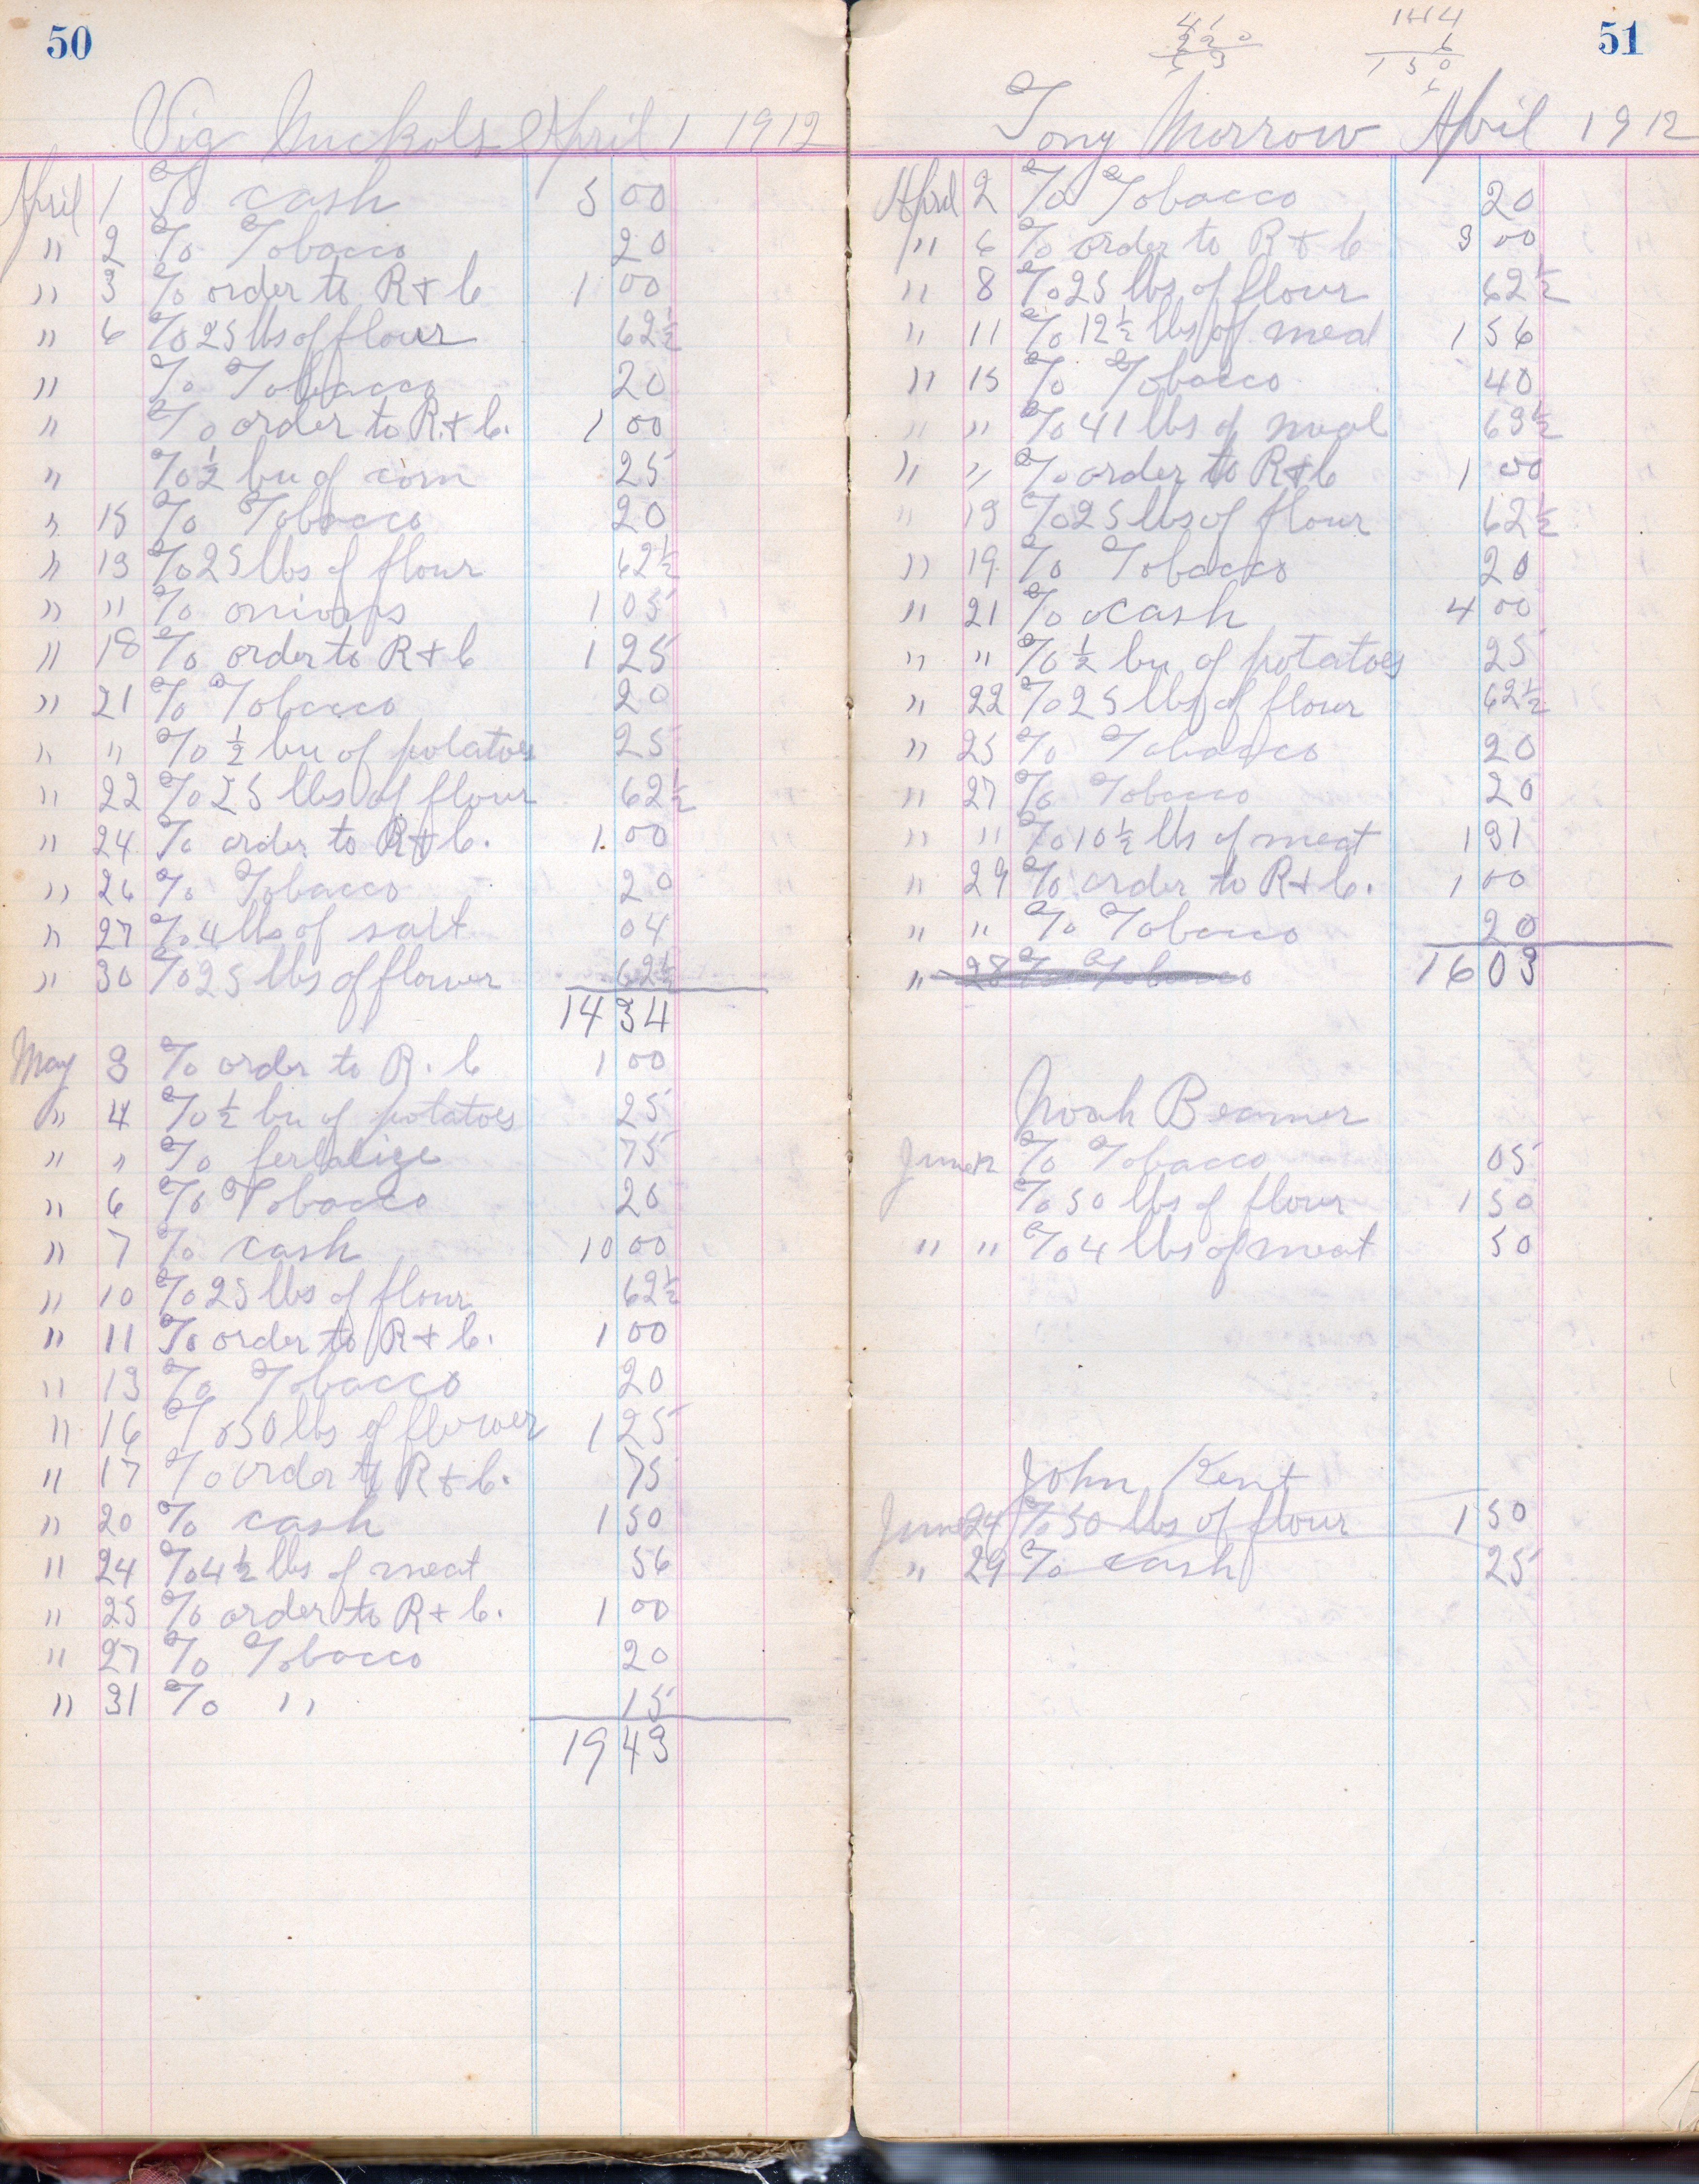 50
Vig Nuckols April 1 1912
April 1 To cash 5 00
" 2 To Tobacco 20
" 3 To order to R + C 1 00
" 6 To 25 lbs of flour 62½
" To Tobacco 20
" To order to R. + C. 1 00
" To ½ bu of corn 25
" 15 To Tobacco 20
" 13 To 25 lbs of flour 62½
" " To onions 1 05
" 18 To order to R + C 1 25
" 21 To Tobacco 20
" " To ½ bu of potatoes 25
" 22 To 25 lbs of flour 62½
" 24 To order to R + C. 1.00
" 26 To Tobacco 20
" 27 To 4 lbs of salt 04
" 30 To 25 lbs of flower 62½
14 34
May 3 To order to R. C 1 00
" 4 To ½ bu of potatoes 25
" " To fertalize 75
" 6 To Tobacco 20
" 7 To cash 10 00
" 10 To 25 lbs of flour 62½
" 11 To order to R + C. 1 00
" 13 To Tobacco 20
" 16 To 50 lbs of flower 1 25
" 17 To order to R + C. 75
" 20 To cash 1 50
" 24 To 4½ lbs of meat 56
" 25 To order to R + C. 1 00
" 27 To Tobacco 20
" 31 To " 15
19 43
51
Tony Morrow April 1912
April 2 To Tobacco 20
" 6 To order to R + C 3 00
" 8 To 25 lbs of flour 62½
" 11 To 12½ lbs of meal 1 56
" 15 To Tobacco 40
" " To 41 lbs of meal 63½
" " To order to R + C 1 00
" 13 To 25 lbs of flour 62½
" 19 To Tobacco 20
" 21 To cash 4 00
" " To ½ bu of potatoes 25
" 22 To 25 lbs of flour 62½
" 25 To Tobacco 20
" 27 To Tobacco 20
" " To 10½ lbs of meat 1 31
" 29 To order to R + C. 1 00
" " To Tobacco 20
" 28 To Tobacco 16 03
Noah Beamer
June 12 To Tobacco 05
To 50 lbs of flour 1 50
" " To 4 lbs of meat 50
John Kent
June 24 To 50 lbs of flour 1 50
" 29 To cash 25